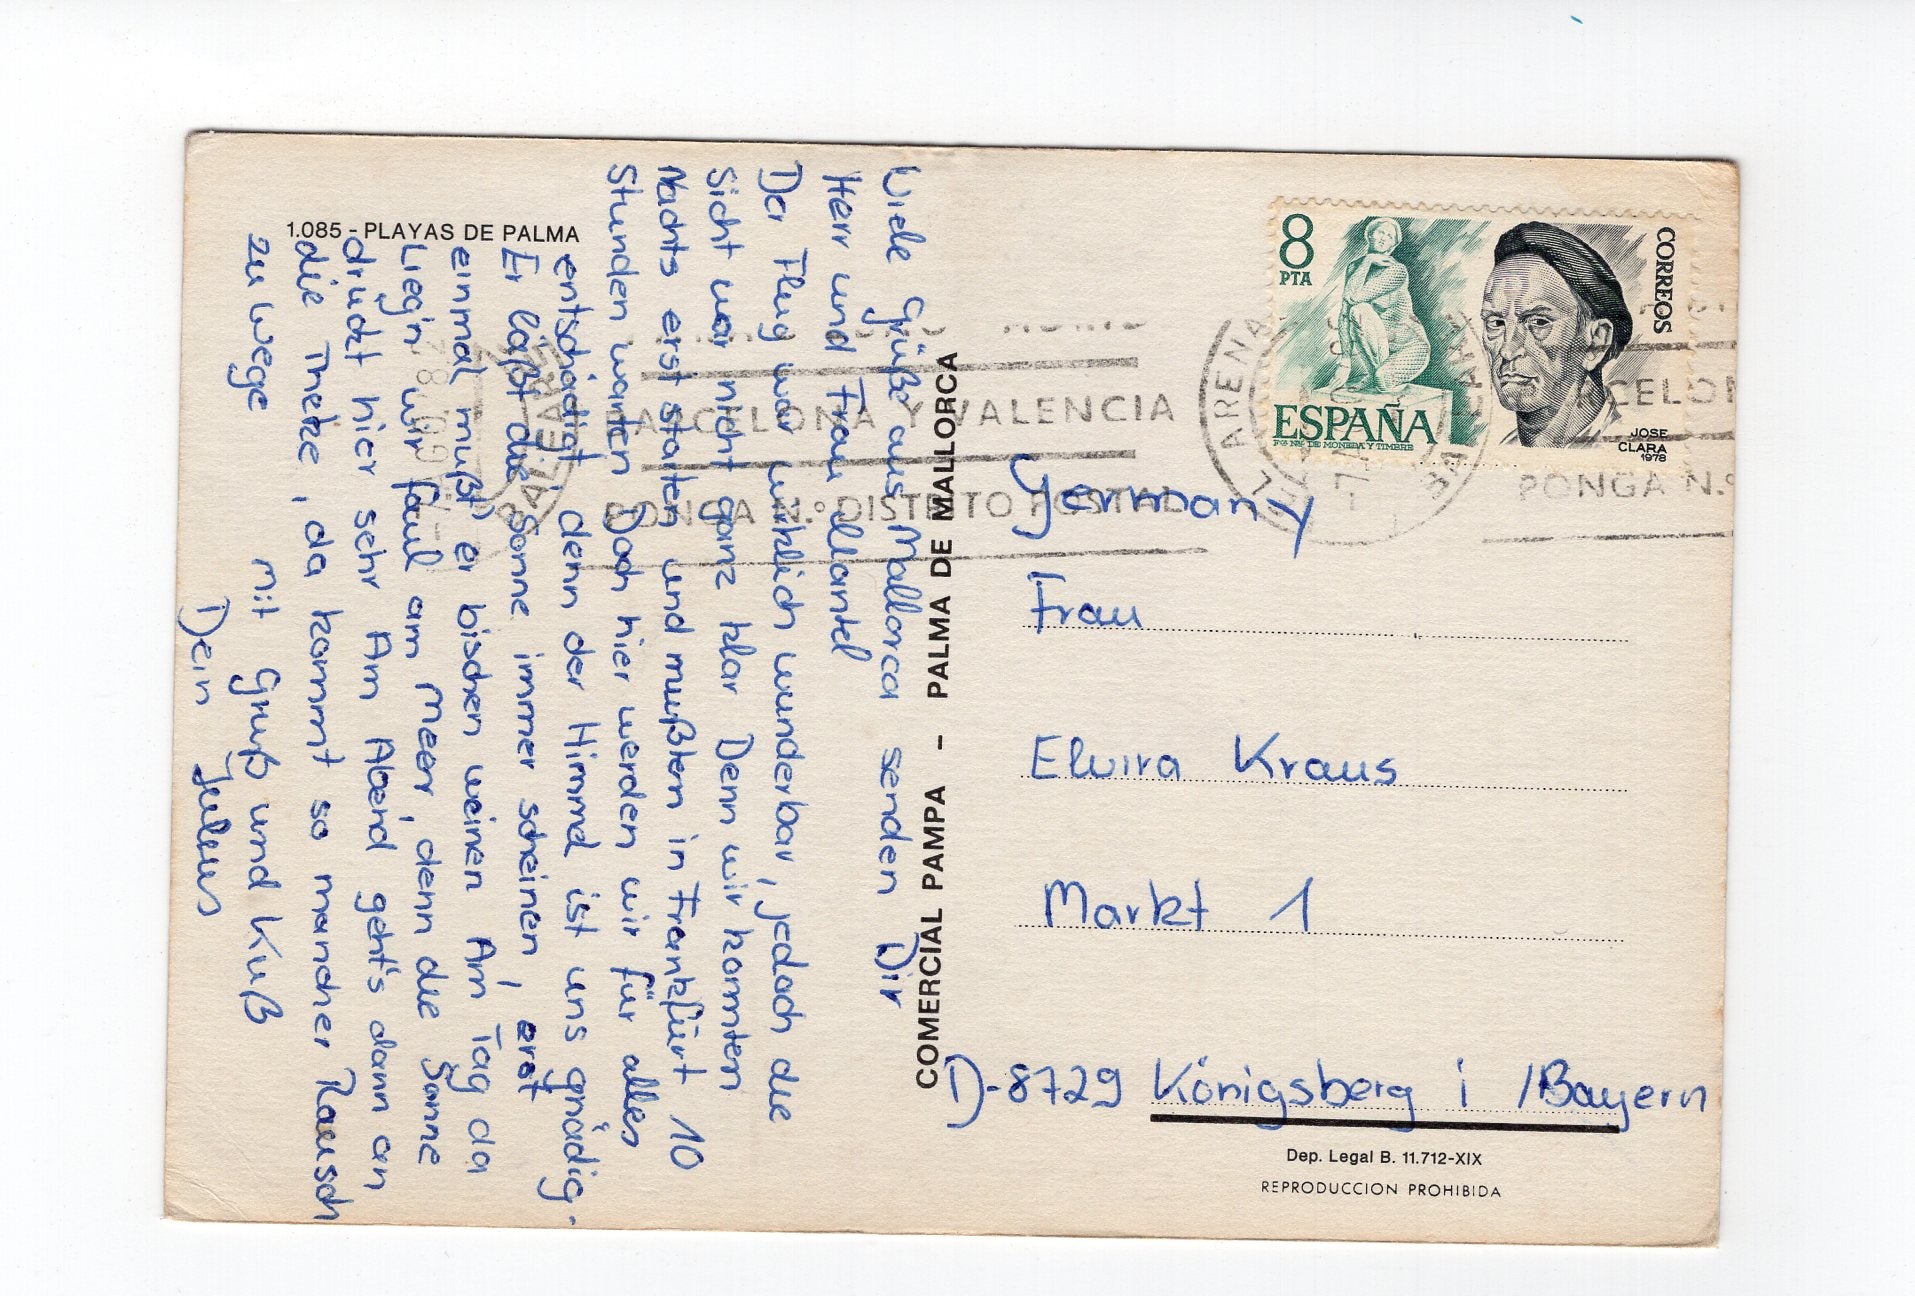 1.085 - PLAYAS DE PALMA
Viele Grüße aus Mallorca senden Dir
Herr und Frau
Der Flug war wirklich wunderbar, jedoch die
Sicht war nicht ganz klar Denn wir konnten
Nachts erst starten und mußten in Frankfurt 10
Stunden warten Doch hier werden wir für alles
entschädigt, denn der Himmel ist uns gnädig.
Er läßt die Sonne immer scheinen, erst
einmal mußt' er bischen weinen Am Tag da
lieg'n wir faul am Meer, denn die Sonne
drückt hier sehr Am Abend geht's dann an
die Theke, da kommt so mancher Rausch
zu Wege
mit Gruß und Kuß
Dein Julius
COMERCIAL PAMPA - PALMA DE MALLORCA
8
PTA
CORREOS
ESPAÑA
F.N. DE MONEDA Y TIMBRE
JOSE
CLARA
1978
BARCELONA Y VALENCIA
PONGA N.º DISTRITO POSTAL
BALEARES
ARENAL
CELON
PONGA N.º
Germany
Frau
Elvira Kraus
Markt 1
D-8729 Königsberg i /Bayern
Dep. Legal B. 11.712-XIX
REPRODUCCION PROHIBIDA